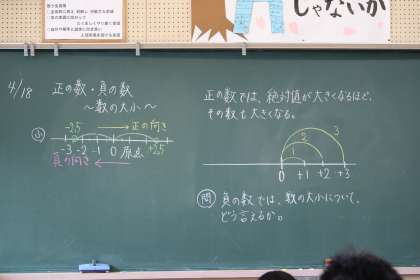 じゃないか
4/18
正の数・負の数
～数の大小～
-2.5
正の向き
-3 -2 -1 0 原点 +2.5
負の向き
正の数では、絶対値が大きくなるほど、
その数も大きくなる。
3
2
1
0 +1 +2 +3
問 負の数では、数の大小について、
どう言えるか。